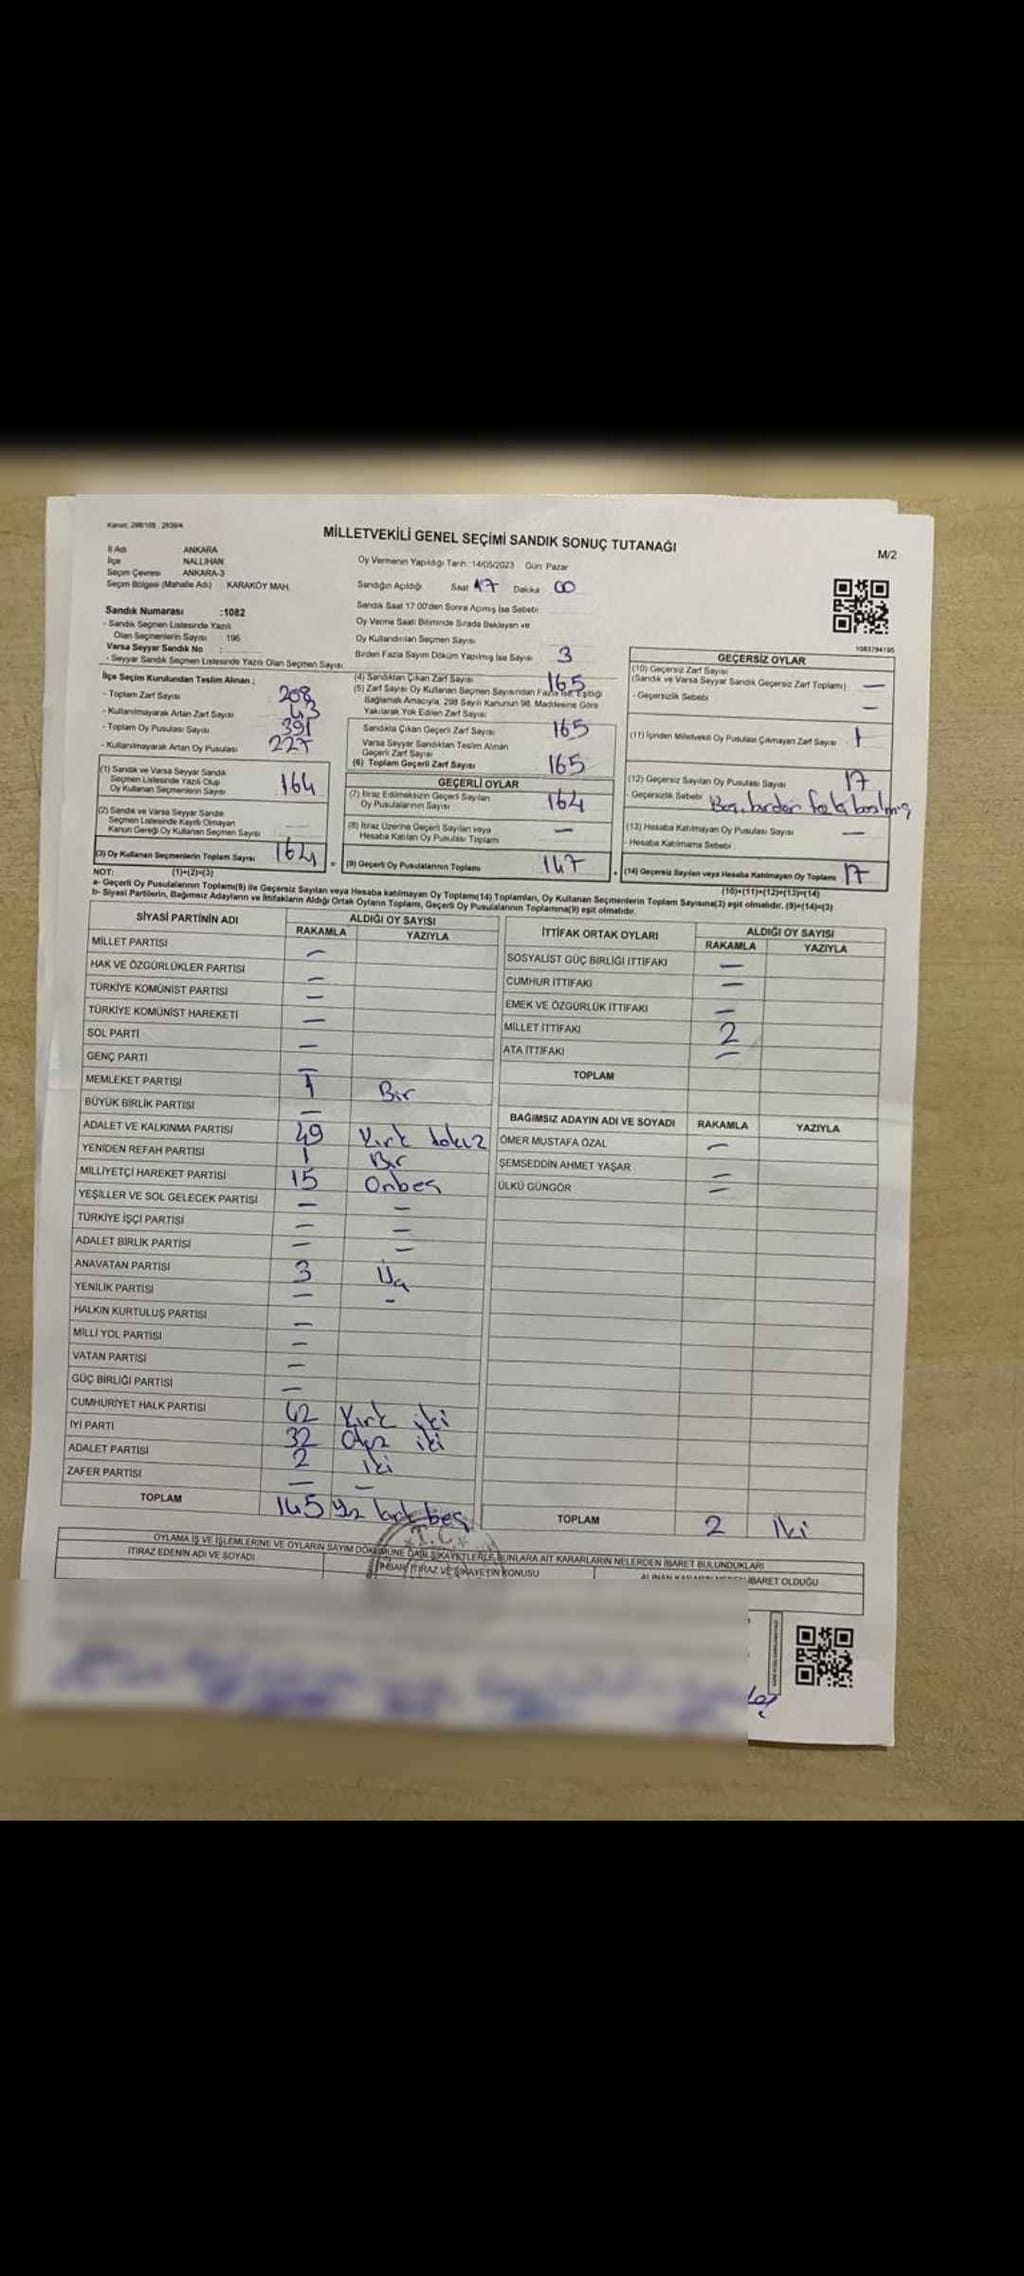 Kanun: 298/105 , 2839/4
MİLLETVEKİLİ GENEL SEÇİMİ SANDIK SONUÇ TUTANAĞI
M/2
İl Adı ANKARA
İlçe NALLIHAN
Seçim Çevresi ANKARA-3
Seçim Bölgesi (Mahalle Adı) KARAKÖY MAH.
Sandık Numarası :1082
- Sandık Seçmen Listesinde Yazılı
Olan Seçmenlerin Sayısı 196
Varsa Seyyar Sandık No :
- Seyyar Sandık Seçmen Listesinde Yazılı Olan Seçmen Sayısı:
İlçe Seçim Kurulundan Teslim Alınan ;
- Toplam Zarf Sayısı 208
- Kullanılmayarak Artan Zarf Sayısı 43
- Toplam Oy Pusulası Sayısı 391
- Kullanılmayarak Artan Oy Pusulası 227
(1) Sandık ve Varsa Seyyar Sandık
Seçmen Listesinde Yazılı Olup
Oy Kullanan Seçmenlerin Sayısı 164
(2) Sandık ve Varsa Seyyar Sandık
Seçmen Listesinde Kayıtlı Olmayan
Kanun Gereği Oy Kullanan Seçmen Sayısı
(3) Oy Kullanan Seçmenlerin Toplam Sayısı 164
Oy Vermenin Yapıldığı Tarih :14/05/2023 Gün: Pazar
Sandığın Açıldığı Saat 17 Dakika : 00
Sandık Saat 17:00'den Sonra Açılmış İse Sebebi:
Oy Verme Saati Bitiminde Sırada Bekleyen ve
Oy Kullandırılan Seçmen Sayısı
Birden Fazla Sayım Döküm Yapılmış İse Sayısı 3
(4) Sandıktan Çıkan Zarf Sayısı 165
(5) Zarf Sayısı Oy Kullanan Seçmen Sayısından Fazla İse, Eşitliği
Sağlamak Amacıyla, 298 Sayılı Kanunun 98. Maddesine Göre
Yakılarak Yok Edilen Zarf Sayısı
Sandıkta Çıkan Geçerli Zarf Sayısı 165
Varsa Seyyar Sandıktan Teslim Alınan
Geçerli Zarf Sayısı
(6) Toplam Geçerli Zarf Sayısı 165
GEÇERLİ OYLAR
(7) İtiraz Edilmeksizin Geçerli Sayılan
Oy Pusulalarının Sayısı 164
(8) İtiraz Üzerine Geçerli Sayılan veya
Hesaba Katılan Oy Pusulası Toplamı —
= (9) Geçerli Oy Pusulalarının Toplamı 147
1083784195
GEÇERSİZ OYLAR
(10) Geçersiz Zarf Sayısı
(Sandık ve Varsa Seyyar Sandık Geçersiz Zarf Toplamı) —
- Geçersizlik Sebebi —
(11) İçinden Milletvekili Oy Pusulası Çıkmayan Zarf Sayısı 1
(12) Geçersiz Sayılan Oy Pusulası Sayısı 17
- Geçersizlik Sebebi birden fazla basılmış
(13) Hesaba Katılmayan Oy Pusulası Sayısı —
- Hesaba Katılmama Sebebi
+ (14) Geçersiz Sayılan veya Hesaba Katılmayan Oy Toplamı 17
NOT: (1)+(2)=(3) (10)+(11)+(12)+(13)=(14)
a- Geçerli Oy Pusulalarının Toplamı(9) ile Geçersiz Sayılan veya Hesaba katılmayan Oy Toplamı(14) Toplamları, Oy Kullanan Seçmenlerin Toplam Sayısına(3) eşit olmalıdır. (9)+(14)=(3)
b- Siyasi Partilerin, Bağımsız Adayların ve İttifakların Aldığı Ortak Oyların Toplamı, Geçerli Oy Pusulalarının Toplamına(9) eşit olmalıdır.
SİYASİ PARTİNİN ADI ALDIĞI OY SAYISI
RAKAMLA YAZIYLA
MİLLET PARTİSİ —
HAK VE ÖZGÜRLÜKLER PARTİSİ —
TÜRKİYE KOMÜNİST PARTİSİ —
TÜRKİYE KOMÜNİST HAREKETİ —
SOL PARTİ —
GENÇ PARTİ —
MEMLEKET PARTİSİ 1 Bir
BÜYÜK BİRLİK PARTİSİ —
ADALET VE KALKINMA PARTİSİ 49 Kırk dokuz
YENİDEN REFAH PARTİSİ 1 Bir
MİLLİYETÇİ HAREKET PARTİSİ 15 Onbeş
YEŞİLLER VE SOL GELECEK PARTİSİ — —
TÜRKİYE İŞÇİ PARTİSİ — —
ADALET BİRLİK PARTİSİ — —
ANAVATAN PARTİSİ 3 Üç
YENİLİK PARTİSİ — -
HALKIN KURTULUŞ PARTİSİ —
MİLLİ YOL PARTİSİ —
VATAN PARTİSİ —
GÜÇ BİRLİĞİ PARTİSİ —
CUMHURİYET HALK PARTİSİ 42 Kırk iki
İYİ PARTİ 32 Otuz iki
ADALET PARTİSİ 2 iki
ZAFER PARTİSİ — —
TOPLAM 145 Yüz kırk beş
İTTİFAK ORTAK OYLARI ALDIĞI OY SAYISI
RAKAMLA YAZIYLA
SOSYALİST GÜÇ BİRLİĞİ İTTİFAKI —
CUMHUR İTTİFAKI —
EMEK VE ÖZGÜRLÜK İTTİFAKI —
MİLLET İTTİFAKI 2
ATA İTTİFAKI —
TOPLAM
BAĞIMSIZ ADAYIN ADI VE SOYADI RAKAMLA YAZIYLA
ÖMER MUSTAFA ÖZAL —
ŞEMSEDDİN AHMET YAŞAR —
ÜLKÜ GÜNGÖR —
TOPLAM 2 iki
T.C.
OYLAMA İŞ VE İŞLEMLERİNE VE OYLARIN SAYIM DÖKÜMÜNE DAİR ŞİKAYETLERLE BUNLARA AİT KARARLARIN NELERDEN İBARET BULUNDUKLARI
İTİRAZ EDENİN ADI VE SOYADI
İHBAR, İTİRAZ VE ŞİKAYETİN KONUSU
ALINAN KARARIN NEDEN İBARET OLDUĞU